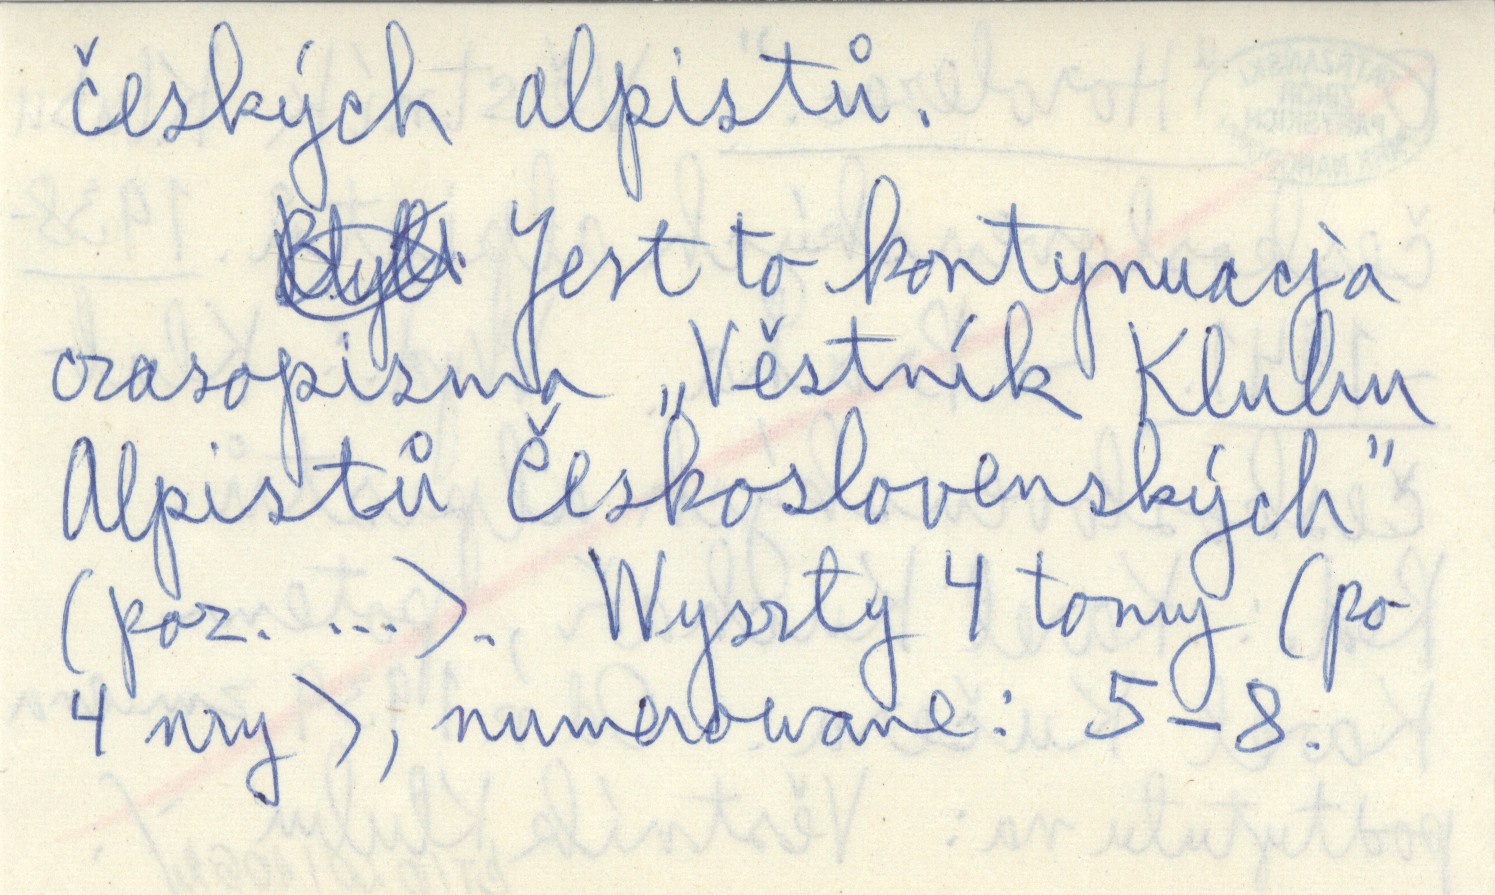 českých alpistů.
Jest to kontynuacja
czasopisma „Věstník Klubu
Alpistů Československých”
(poz. ...). Wyszły 4 tomy (po
4 nry), numerowane: 5–8.